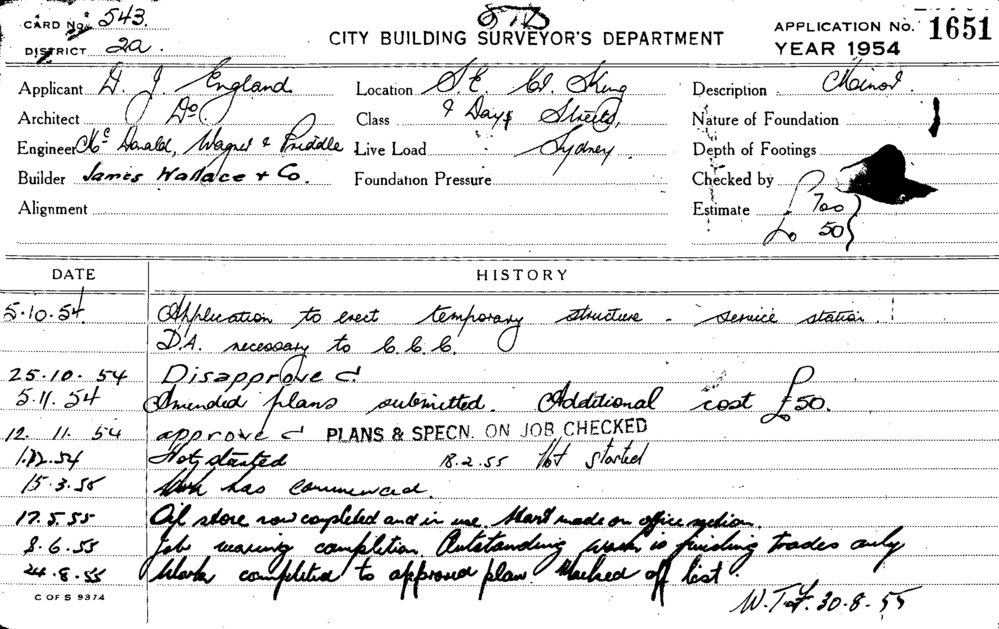 CARD No. 543.
DISTRICT 2a.
CITY BUILDING SURVEYOR'S DEPARTMENT
APPLICATION No. 1651
YEAR 1954
Applicant D. J. England
Location S.E. Cr. King
Description Minor
Architect Do.
Class & Day Streets,
Nature of Foundation
Engineer McDonald, Wagner & Priddle
Live Load Sydney.
Depth of Footings
Builder James Wallace & Co.
Foundation Pressure
Checked by
Alignment
Estimate £ 700
£ 50
DATE HISTORY
5.10.54. Application to erect temporary structure - service station.
D.A. necessary to C.C.C.
25.10.54 Disapproved
5.11.54 Amended plans submitted. Additional cost £50.
12.11.54 approved PLANS & SPECN. ON JOB CHECKED
1.12.54 Not started 18.2.55 Not started
15.3.55 Work has commenced.
17.5.55 Oil store now completed and in use. Start made on office section.
8.6.55 Job nearing completion. Outstanding work is finishing trades only
24.8.55 Work completed to approved plan. Marked off list.
C OF S 9374
30.8.55